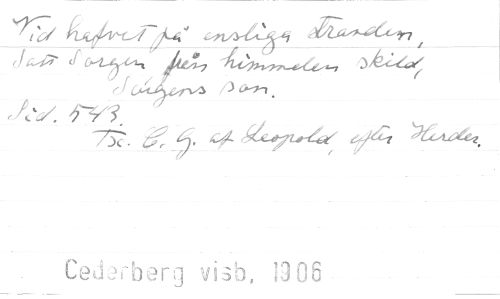 Vid hafvet på ensliga stranden,
Satt Sorgen från himmelen skild,
Sorgens son.
Sid. 543.
Förf. C. G. af Leopold, efter Herder.
Cederberg visb, 1906